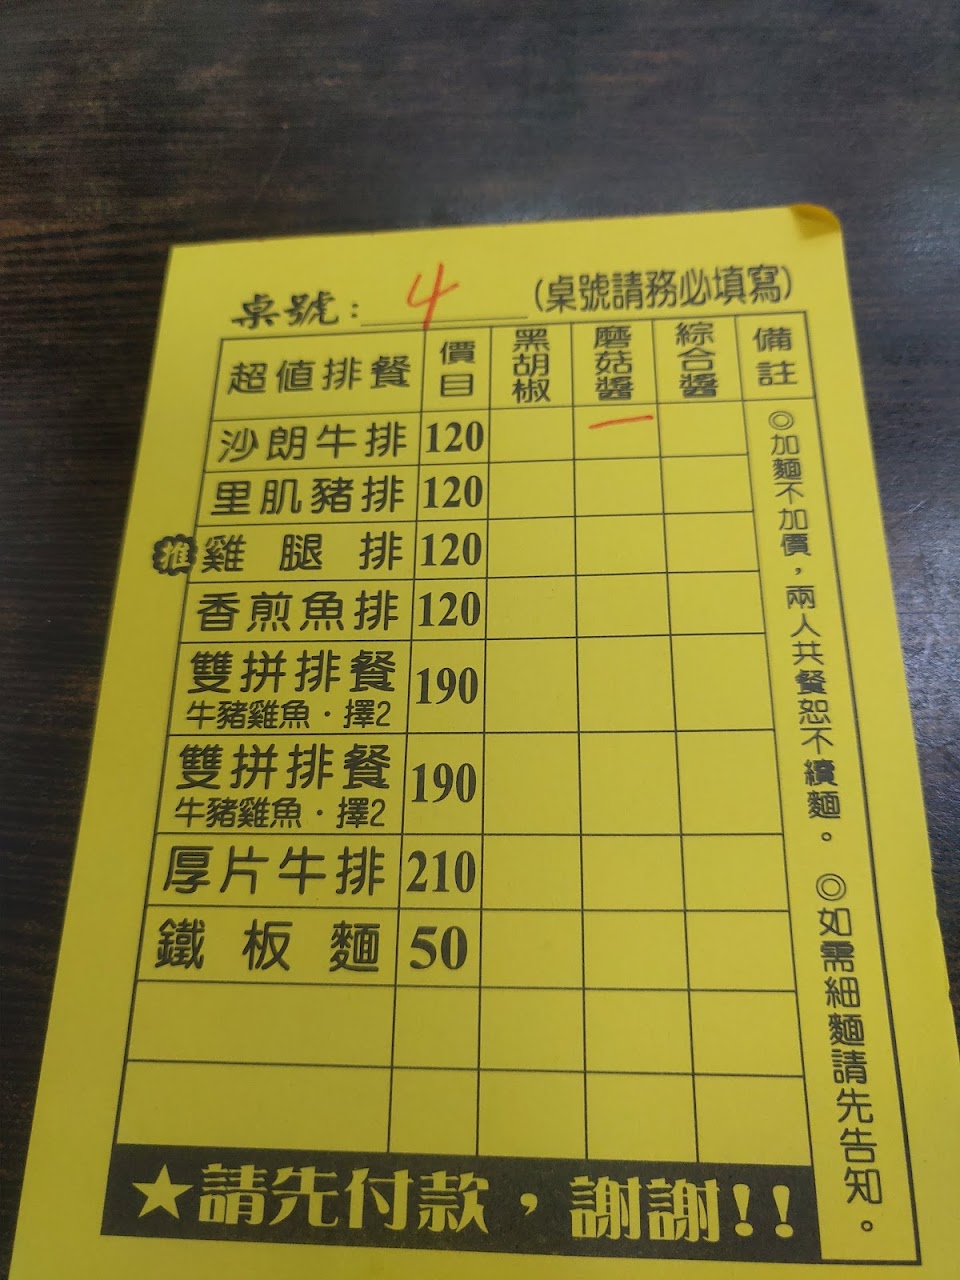 桌號：4（桌號請務必填寫）
超值排餐 價目 黑胡椒 磨菇醬 綜合醬 備註
沙朗牛排 120 一
里肌豬排 120
推 雞腿排 120
香煎魚排 120
雙拼排餐 190
牛豬雞魚·擇2
雙拼排餐 190
牛豬雞魚·擇2
厚片牛排 210
鐵板麵 50
◎加麵不加價，兩人共餐恕不續麵。
◎如需細麵請先告知。
★請先付款，謝謝!!